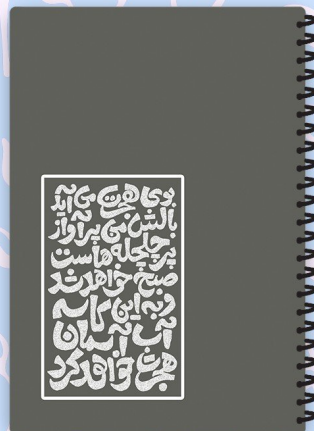 بوی هجرت می آید
بالش من پر آواز
پر چلچله هاست
صبح خواهد شد
و به این کاسه
آب آسمان
هجرت خواهد کرد